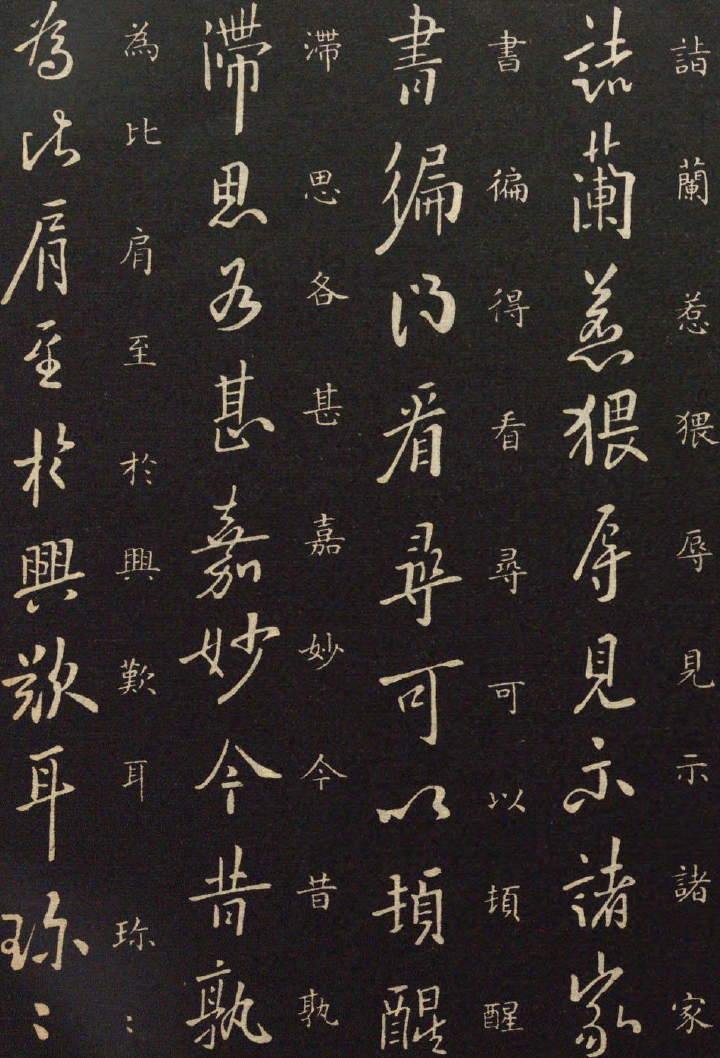 詣蘭惹猥辱見示諸家
詣蘭惹猥辱見示諸家
書徧得看尋可以頓醒
書徧得看尋可以頓醒
滯思各甚嘉妙今昔孰
滯思各甚嘉妙今昔孰
為比肩至於興歎耳珎：
為比肩至於興歎耳珎：